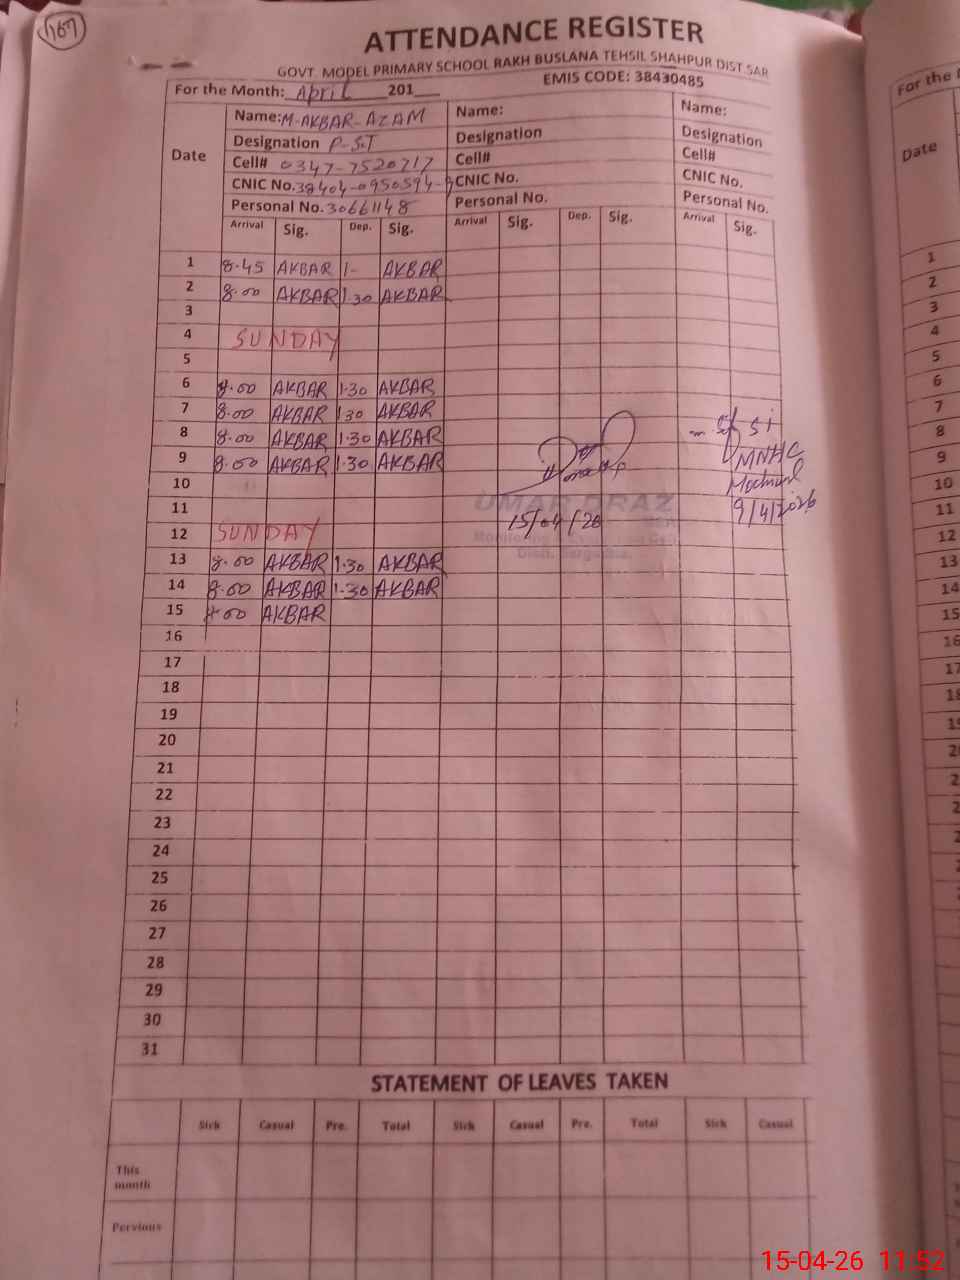 167
ATTENDANCE REGISTER
GOVT. MODEL PRIMARY SCHOOL RAKH BUSLANA TEHSIL SHAHPUR DIST SAR
For the Month: April 201 EMIS CODE: 38430485
Date
Name: M-AKBAR-AZAM Name: Name:
Designation P-S.T Designation Designation
Cell# 0347-7520717 Cell# Cell#
CNIC No. 38404-0950594- CNIC No. CNIC No.
Personal No. 30661148 Personal No. Personal No.
Arrival Sig. Dep. Sig. Arrival Sig. Dep. Sig. Arrival Sig.
1 8.45 AKBAR 1- AKBAR
2 8.00 AKBAR 1.30 AKBAR
3
4 SUNDAY
5
6 8.00 AKBAR 1.30 AKBAR
7 8.00 AKBAR 1 30 AKBAR
8 8.00 AKBAR 1.30 AKBAR
9 8.00 AKBAR 1.30 AKBAR
MNHC
9/4/2026
10
11
UMAR DRAZ
15/04/26
12 SUNDAY
13 8.00 AKBAR 1.30 AKBAR
14 8.00 AKBAR 1.30 AKBAR
15 8.00 AKBAR
16
17
18
19
20
21
22
23
24
25
26
27
28
29
30
31
STATEMENT OF LEAVES TAKEN
Sick Casual Pre. Total Sick Casual Pre. Total Sick Casual
This month
Pervious
For the
Date
1
2
3
4
5
6
7
8
9
10
11
12
13
14
15
16
17
18
15-04-26 11:52